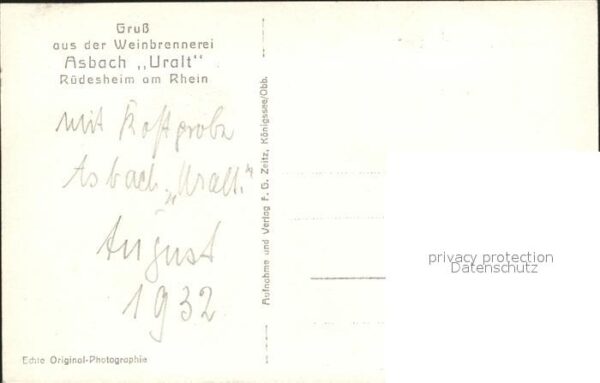 Gruß
aus der Weinbrennerei
Asbach „Uralt"
Rüdesheim am Rhein
mit Kostprobe
Asbach „Uralt."
August
1932
Echte Original-Photographie
Aufnahme und Verlag F. G. Zeitz, Königssee/Obb.
privacy protection
Datenschutz